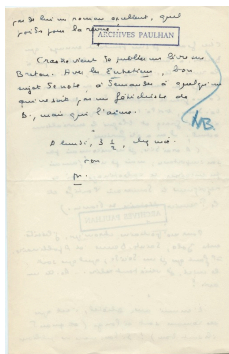 pas de lui un nouveau excellent, quel
poids pour la revue.
ARCHIVES PAULHAN
Crastre vient de publier un livre sur
Breton. Avec les Entretiens, bon
sujet de note, à demander à quelqu'un
qui ne soit pas un fétichiste de
B., mais qui l'aime.
NB.
À lundi, 3 h ½, chez moi.
ton
M.